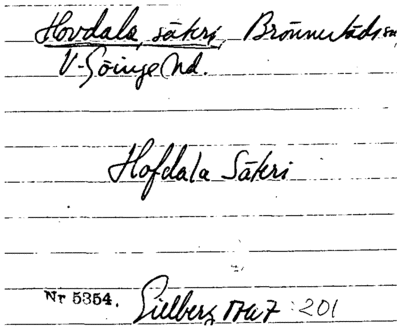 Hovdala, säteri, Brönnestads sn,
V. Göinge hd.
Hofdala Säteri
Nr 5354. Gillberg 1767 : 201